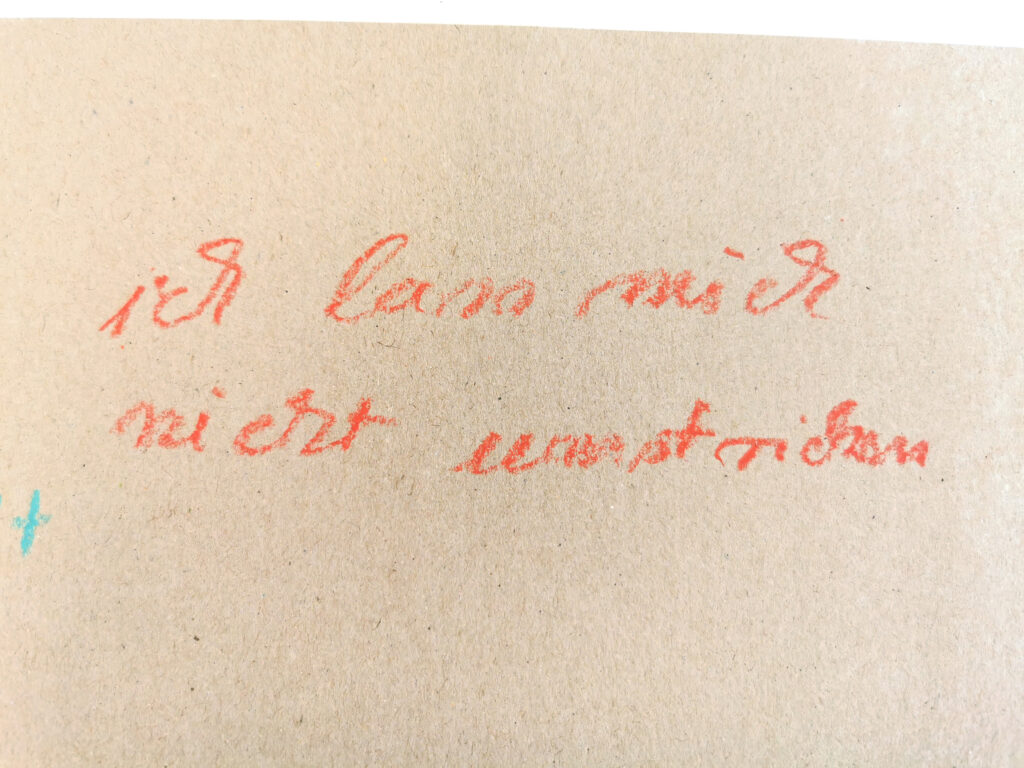 ich lass mich
nicht umstricken